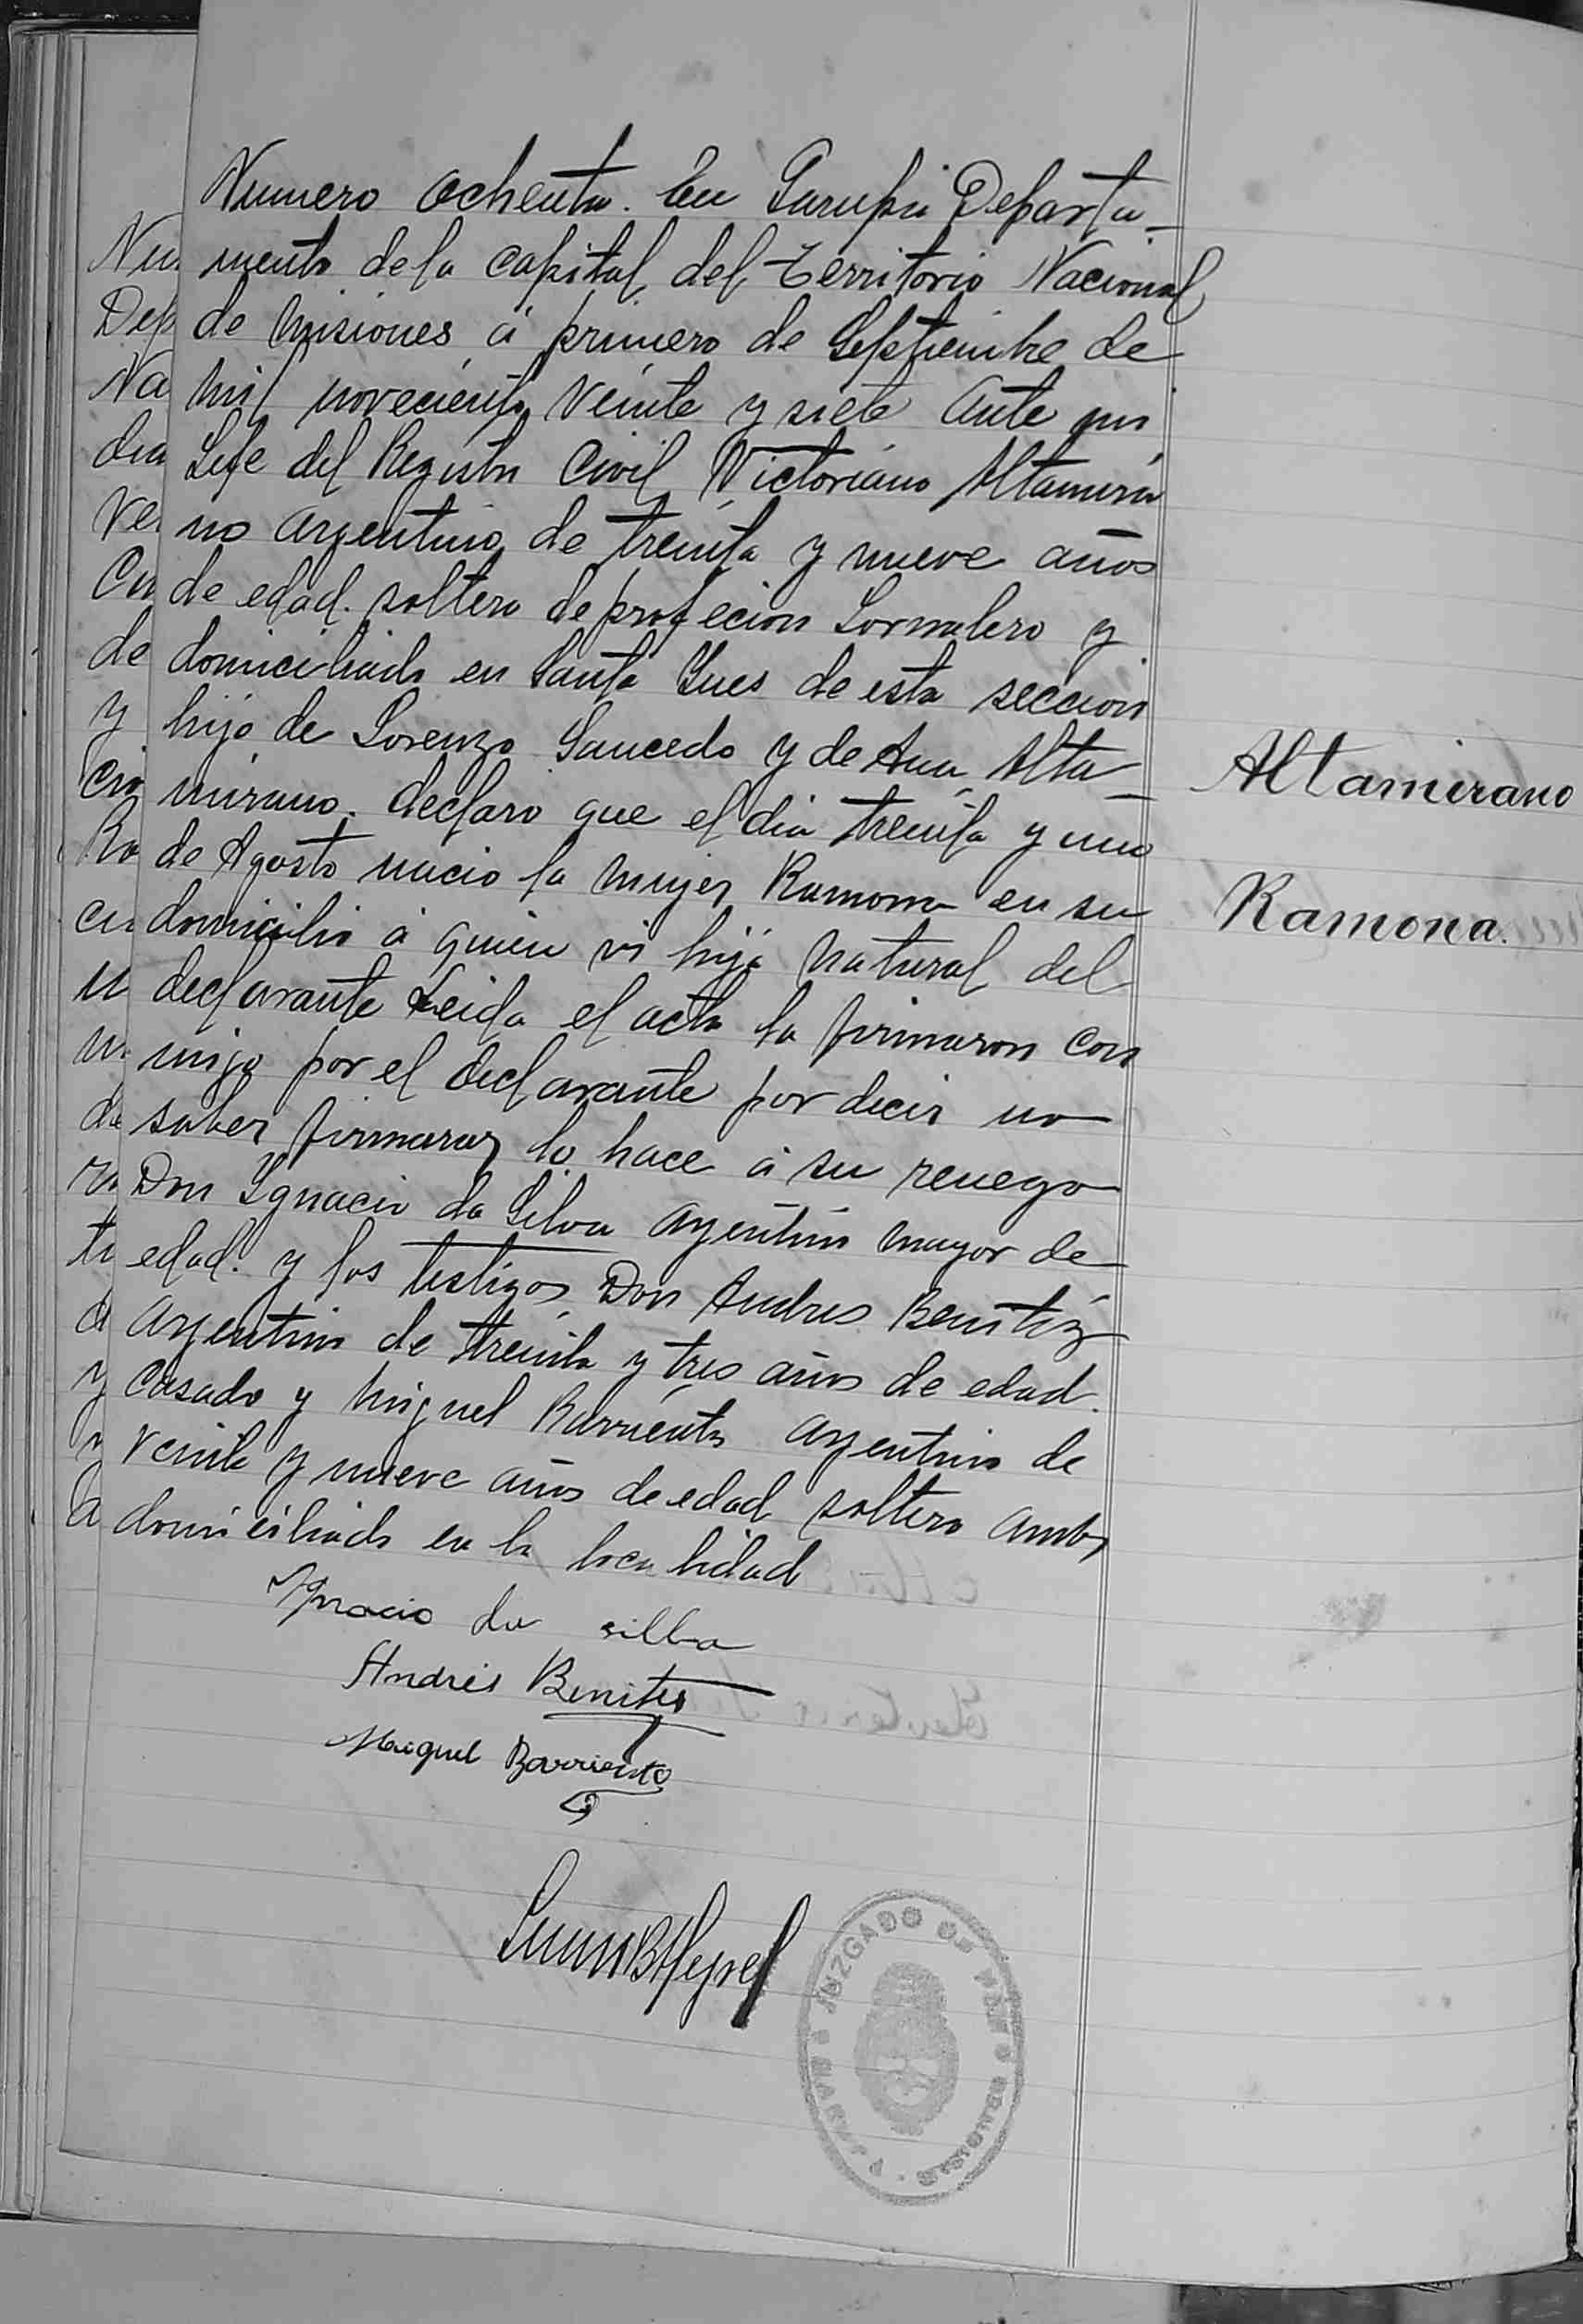 Numero ochenta. En Garupá Departa-
mento de la capital del Territorio Nacional
de Misiones á primero de Septiembre de
mil novecientos veinte y siete Ante mi
Jefe del Registro Civil Victoriano Altamira
no argentino de treinta y nueve años
de edad. soltero de profecion Jornalero y
domiciliado en Santa Ynes de esta seccion
hijo de Lorenzo Saucedo y de Ana Alta-
mirano. declaro que el dia treinta y uno
de Agosto nacio la mujer Ramona en su
domicilio á quien vi hija natural del
declarante Leida el acta la firmaron con
migo por el declarante por decir no
saber firmar lo hace á su renego
Don Ygnacio da Silva argentino mayor de
edad. y los testigos Don Andres Benitez
argentino de treinta y tres años de edad.
casado y Miguel Barrientos argentino de
veinte y nueve años de edad soltero ambos
domiciliado en la localidad
Ygnacio da silba
Andrés Benites
Miguel Barriento
Altamirano
Ramona.
JUZGADO DE PAZ